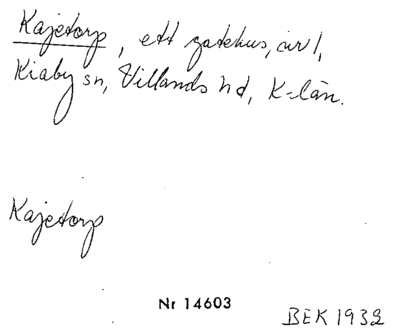 Kajetorp, ett gatehus, av 1,
Kiaby sn, Villands hd, K-län.
Kajetorp
Nr 14603
BEK 1932